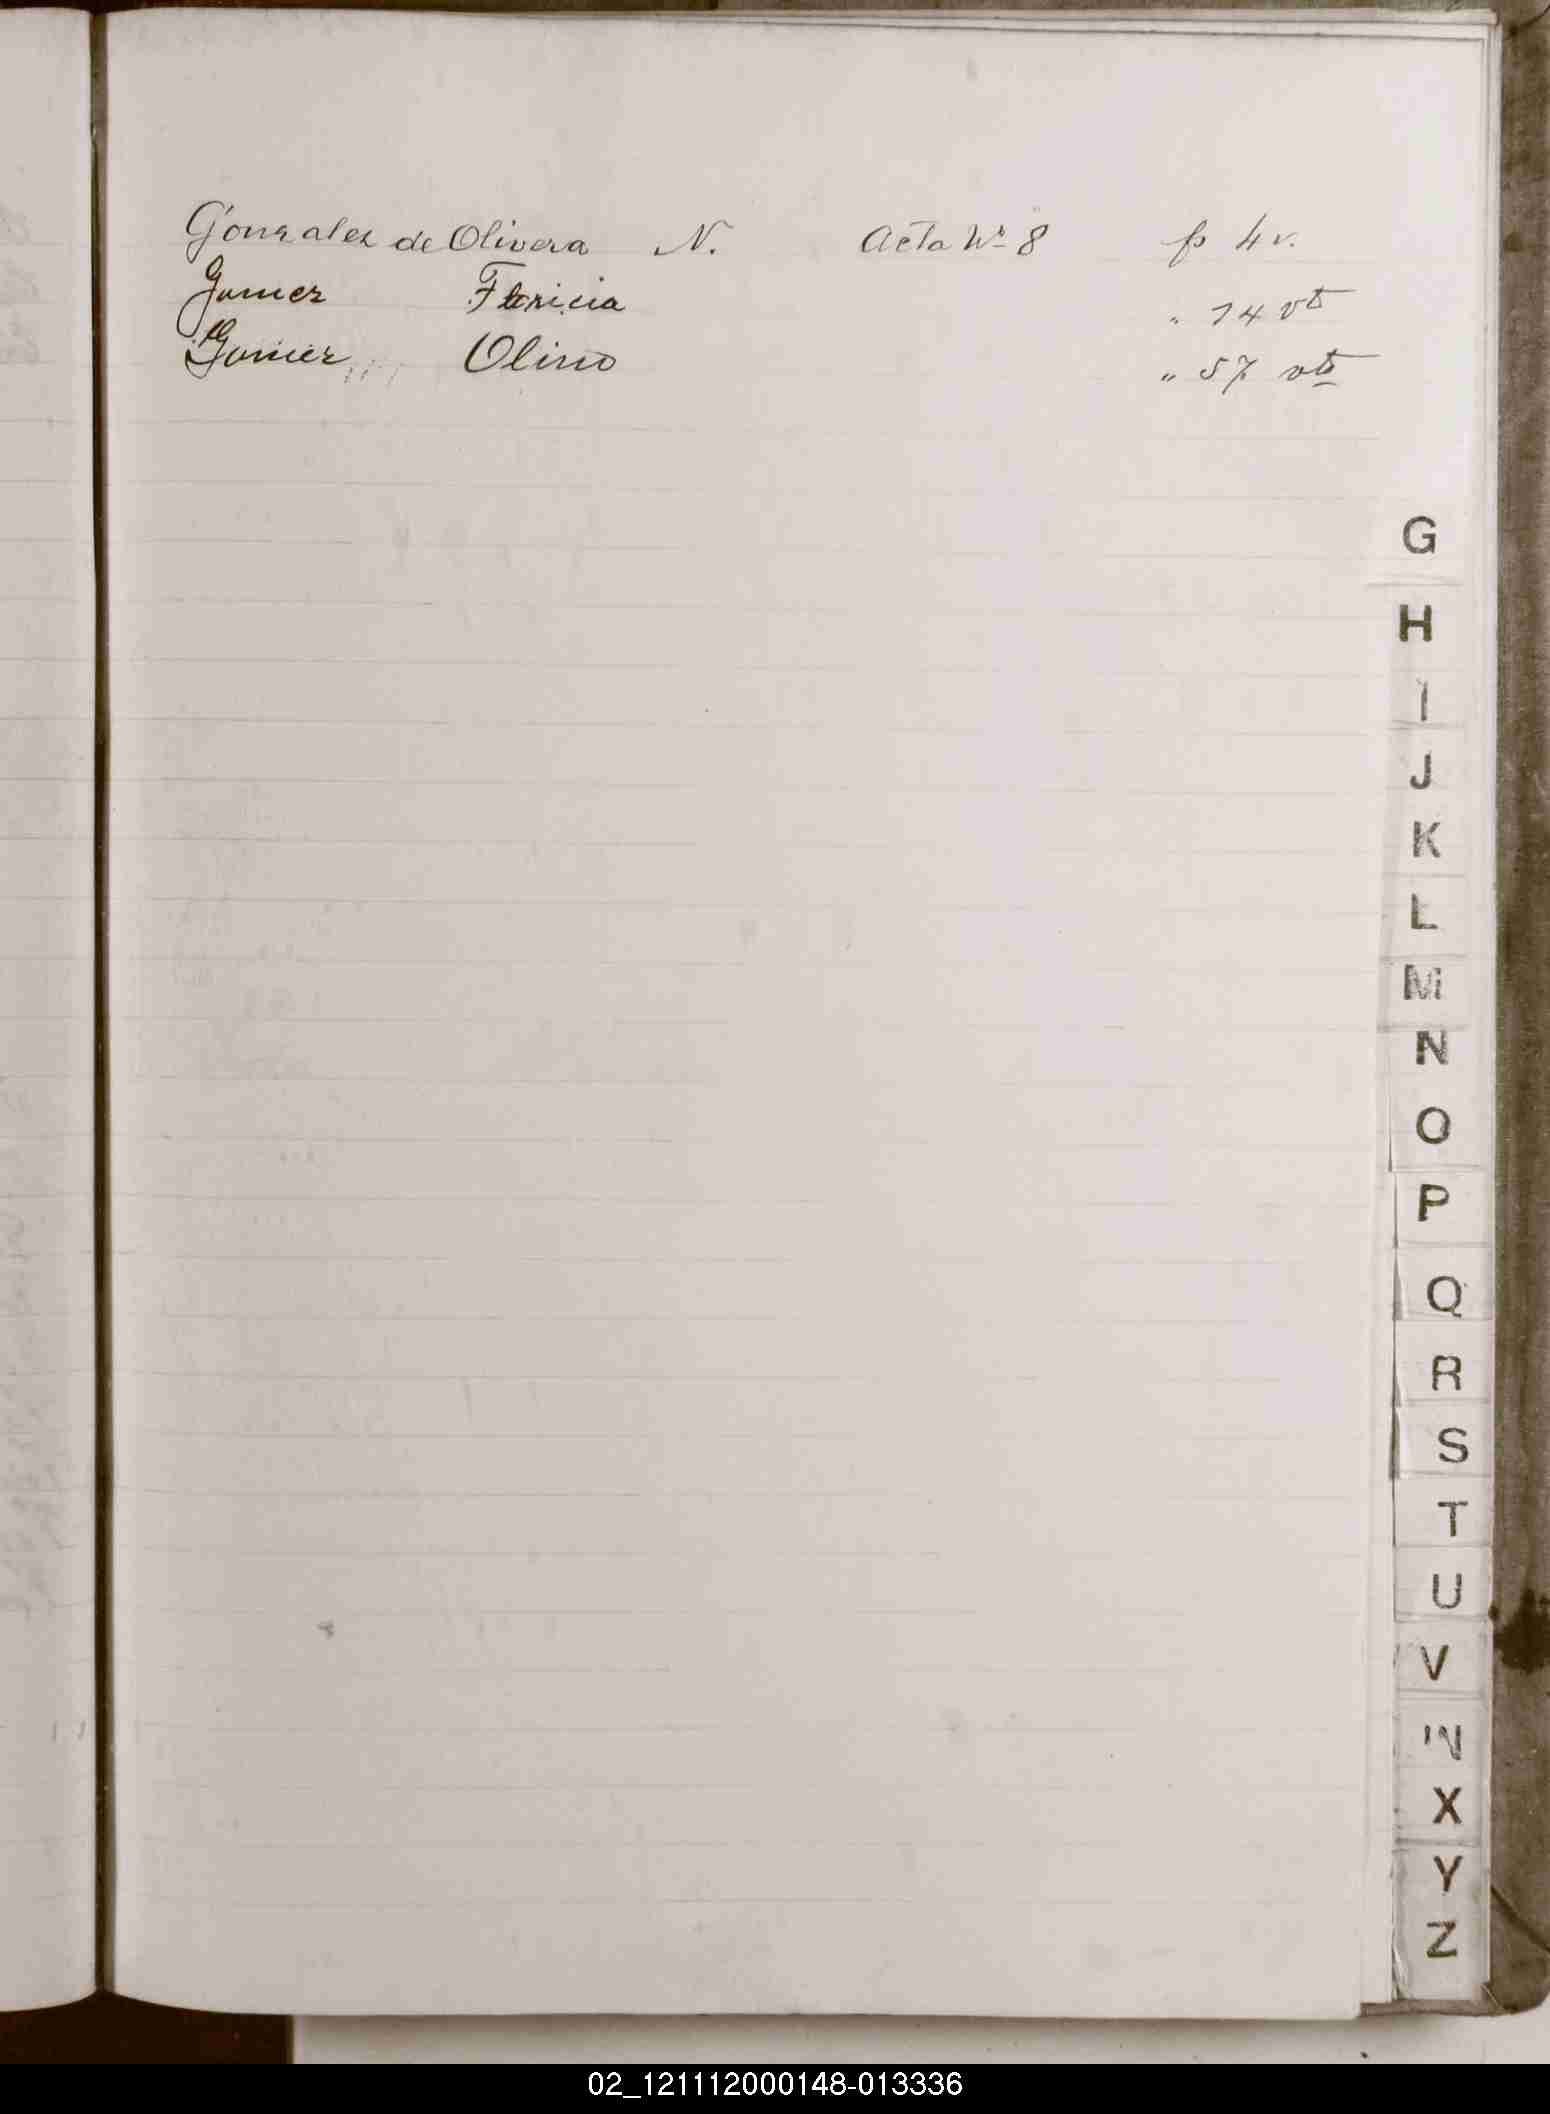 Gonzalez de Olivera N. Acta Nº 8 fo 4 v.
Gomez " 74 vto
Gomez Olino " 57 vto
G
H
I
J
K
L
M
N
O
P
Q
R
S
T
U
V
W
X
Y
Z
02_121112000148-013336